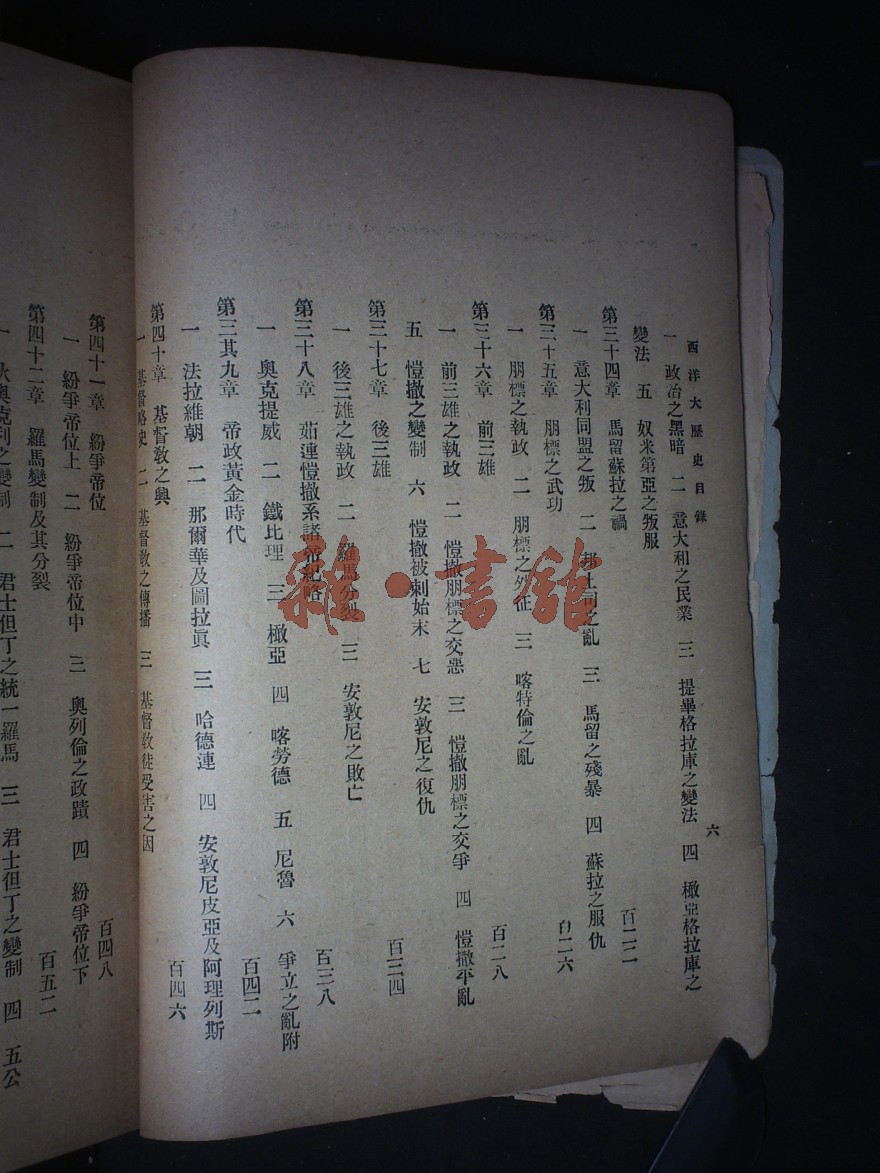 西洋大歷史目錄 六
一 政治之黑暗 二 意大和之民業 三 提畢格拉庫之變法 四 橄亞格拉庫之
變法 五 奴米第亞之叛服
第三十四章 馬留蘇拉之禍 百二二
一 意大利同盟之叛 二 之亂 三 馬留之殘暴 四 蘇拉之服仇
第三十五章 朋標之武功 百二六
一 朋標之執政 二 朋標之外征 三 喀特倫之亂
第三十六章 前三雄 百二八
一 前三雄之執政 二 愷撤朋標之交惡 三 愷撤朋標之交爭 四 愷撒平亂
五 愷撤之變制 六 愷撤被刺始末 七 安敦尼之復仇
第三十七章 後三雄 百三四
一 後三雄之執政 二 羅馬分裂 三 安敦尼之敗亡
第三十八章 茹連愷撤系諸帝紀略 百三八
一 奧克提威 二 鐵比理 三 橄亞 四 喀勞德 五 尼魯 六 爭立之亂附
第三其九章 帝政黃金時代 百四二
一 法拉維朝 二 那爾華及圖拉眞 三 哈德連 四 安敦尼皮亞及阿理列斯
第四十章 基督敎之興 百四六
一 基督略史 二 基督敎之傳播 三 基督敎徒受害之因
第四十一章 紛爭帝位 百四八
一 紛爭帝位上 二 紛爭帝位中 三 奧列倫之政蹟 四 紛爭帝位下
第四十二章 羅馬變制及其分裂 百五二
一 奧克利之變制 二 君士但丁之統一羅馬 三 君士但丁之變制 四 五公
雜·書館